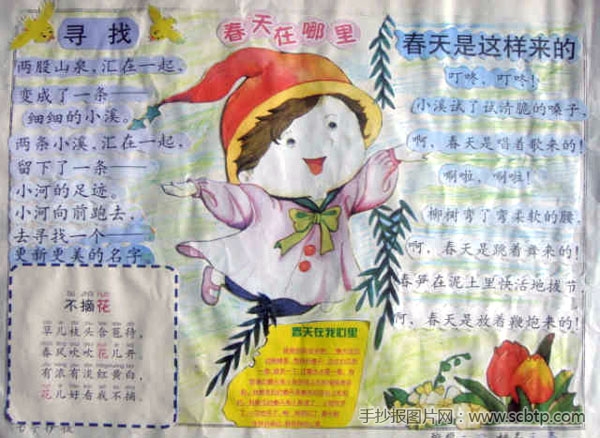 春天在哪里
寻找
两股山泉,汇在一起,
变成了一条——
细细的小溪。
两条小溪,汇在一起,
留下了一条——
小河的足迹。
小河向前跑去,
去寻找一个——
更新更美的名字
不摘花
草儿枝头含苞待,
春风吹吹花儿开
有浓有淡红黄白,
花儿好看我不摘
春天在我们里
春天是这样来的
叮咚,叮咚!
小溪试了试清脆的嗓子,
啊,春天是唱着歌来的!
唰啦,唰啦!
柳树弯了弯柔软的腰,
啊,春天是跳着舞来的!
春笋在泥土里快活地拔节,
啊,春天是放着鞭炮来的!
手抄报图片网:www.scbtp.com